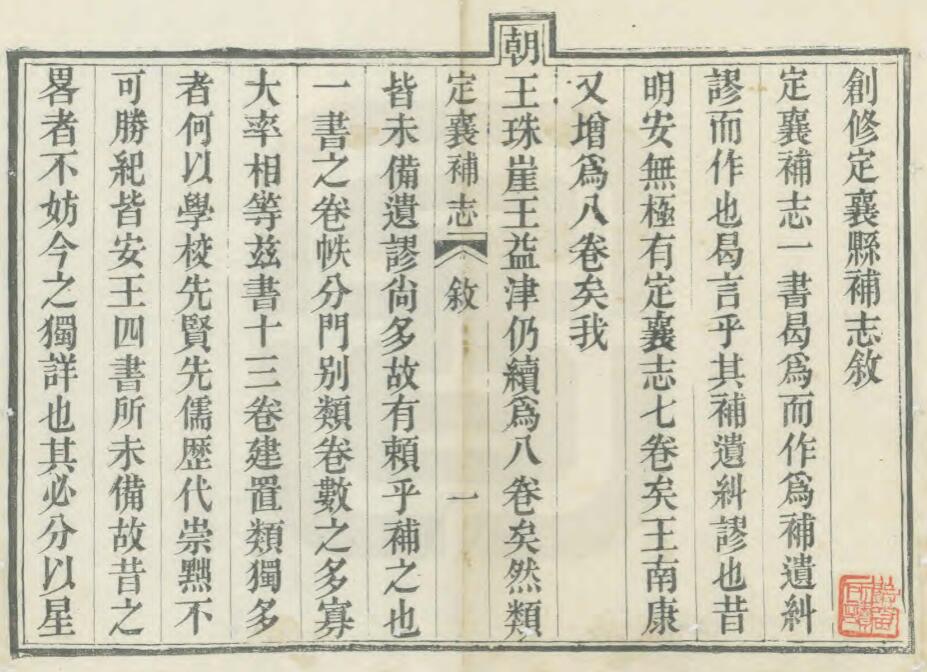 創修定襄縣補志敘
定襄補志一書曷爲而作爲補遺糾
謬而作也曷言乎其補遺糾謬也昔
明安無極有定襄志七卷矣王南康
又增爲八卷矣我
朝
王珠崖王益津仍續爲八卷矣然類
定襄補志 敘 一
皆未備遺謬尙多故有賴乎補之也
一書之卷帙分門别類卷數之多寡
大率相等兹書十三卷建置類獨多
者何以學校先賢先儒歷代崇黜不
可勝紀皆安王四書所未備故昔之
畧者不妨今之獨詳也其必分以星